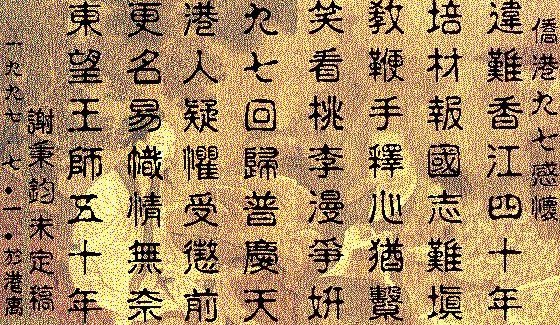 僑港九七感懷
違難香江四十年
培材報國志難填
教鞭手釋心猶繫
笑看桃李漫爭妍
九七回歸普慶天
港人疑懼受懲前
更名易幟情無奈
東望王師五十年
謝秉鈞未定稿
一九九七•七•一•於港寓